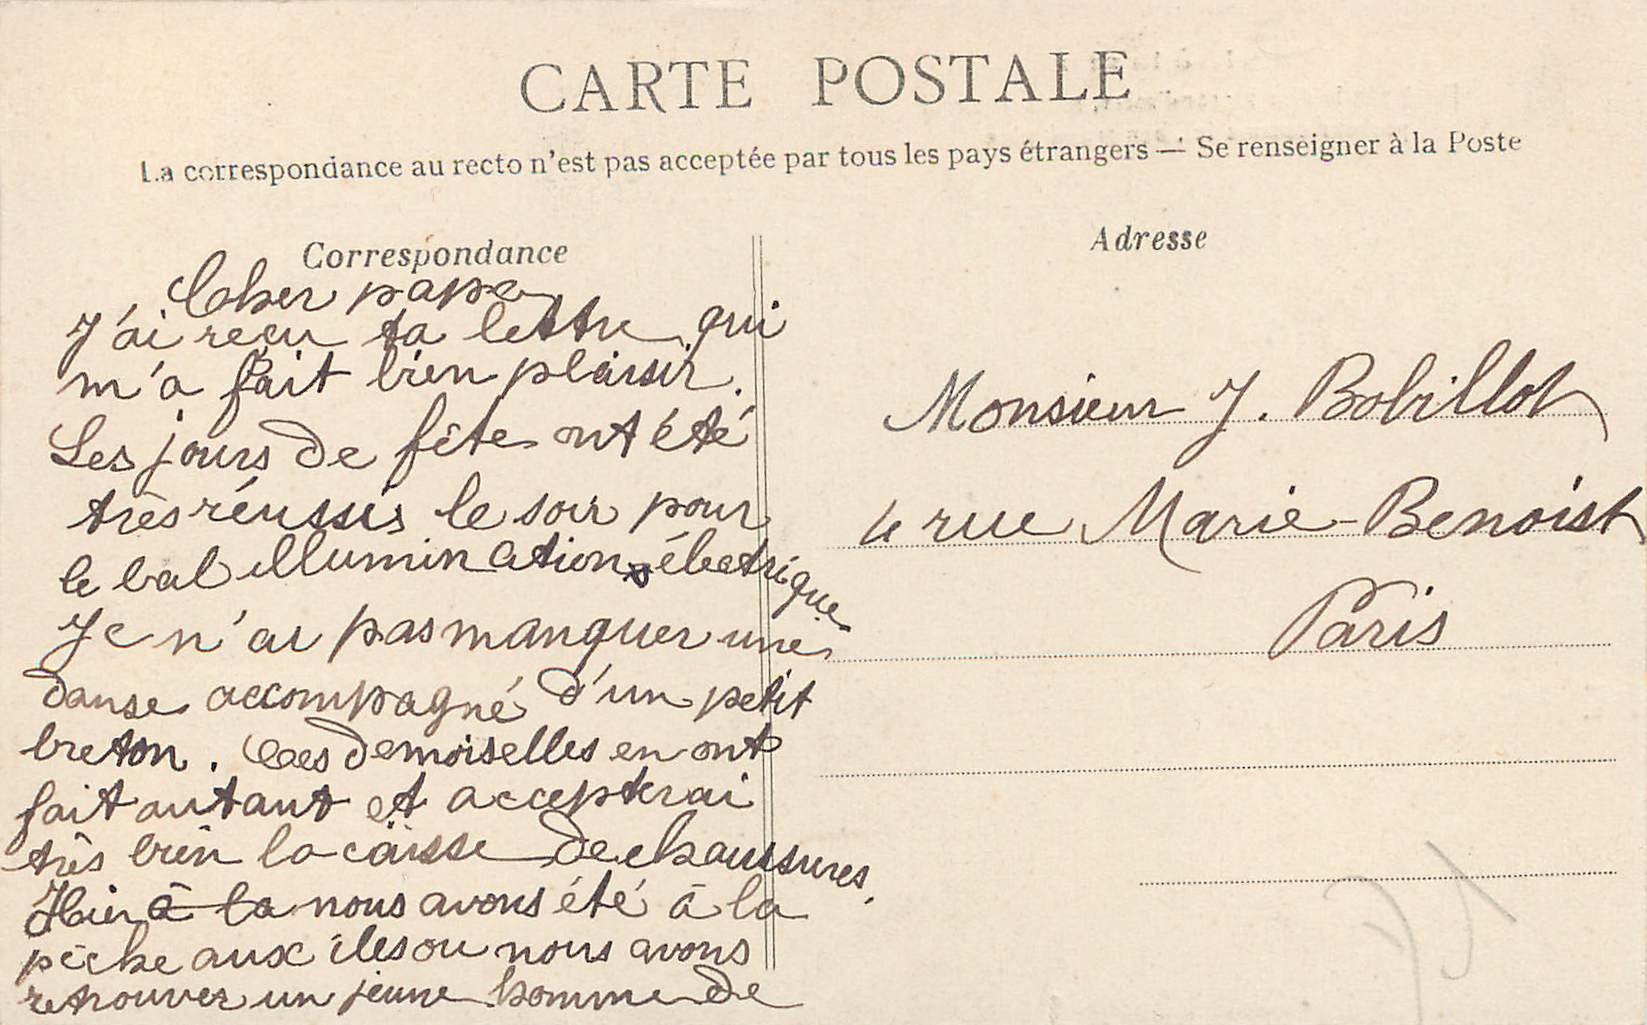 CARTE POSTALE
La correspondance au recto n'est pas acceptée par tous les pays étrangers — Se renseigner à la Poste
Correspondance
Cher papa
J'ai reçu ta lettre qui
m'a fait bien plaisir.
Les jours de fête ont été
très réussis le soir pour
le bal illumination électrique
Je n'ai pas manquer une
danse accompagné d'un petit
breton. Ces demoiselles en ont
fait autant et accepterai
très bien la caisse de chaussures.
Hier à la nous avons été à la
pêche aux îles ou nous avons
retrouver un jeune homme de
Adresse
Monsieur J. Bobillot
4 rue Marie-Benoist
Paris